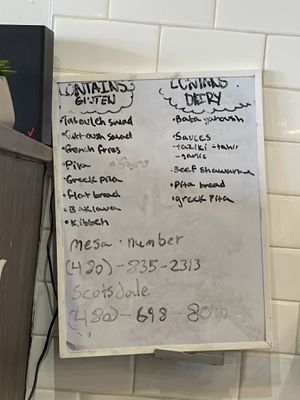 CONTAINS
GLUTEN
• Tabouleh salad
• Fattoush salad
• french fries
• Pita
• Greek Pita
• flat bread
• Baklawa
• Kibbeh
CONTAINS
DAIRY
• Baba ganoush
• Sauces
• Beef Shawarma
• Pita bread
• greek Pita
mesa number
(480)-835-2313
Scotsdale
(480)-698-